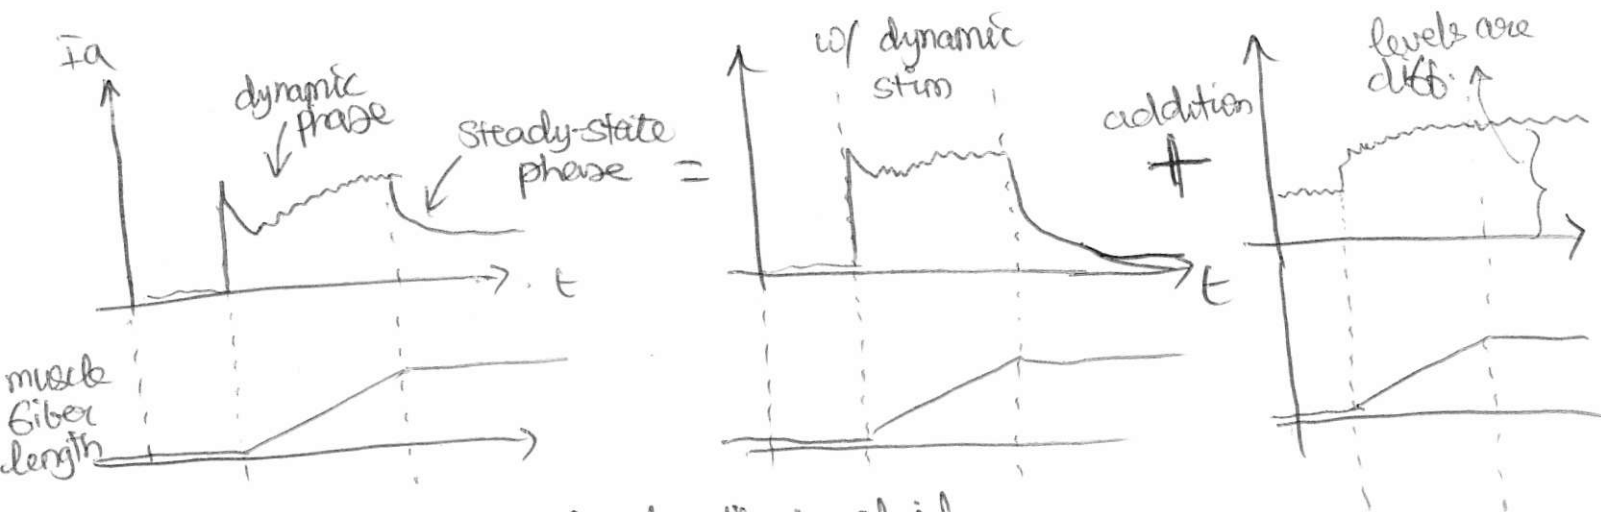 Ia
dynamic
phase
steady-state
phase
=
t
muscle
fiber
length
w/ dynamic
stim
t
addition
+
levels are
diff.